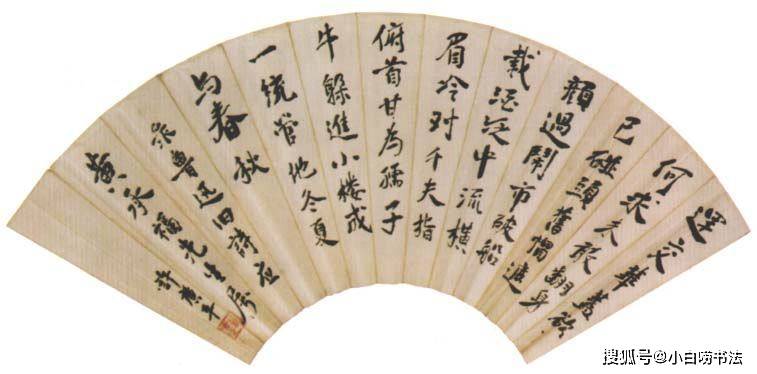 運交華蓋欲
何求未敢翻身
已碰頭舊帽遮
顏過鬧市破船
載酒泛中流橫
眉冷对千夫指
俯首甘為孺子
牛躲進小楼成
一統管他冬夏
与春秋
录魯迅旧詩应
黄福先生属
許廣平
搜狐号@小白唠书法